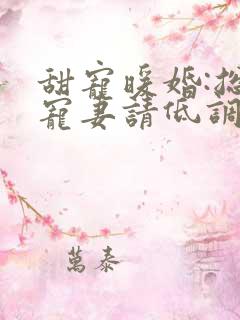 甜寵暖婚:總
寵妻請低調
萬泰